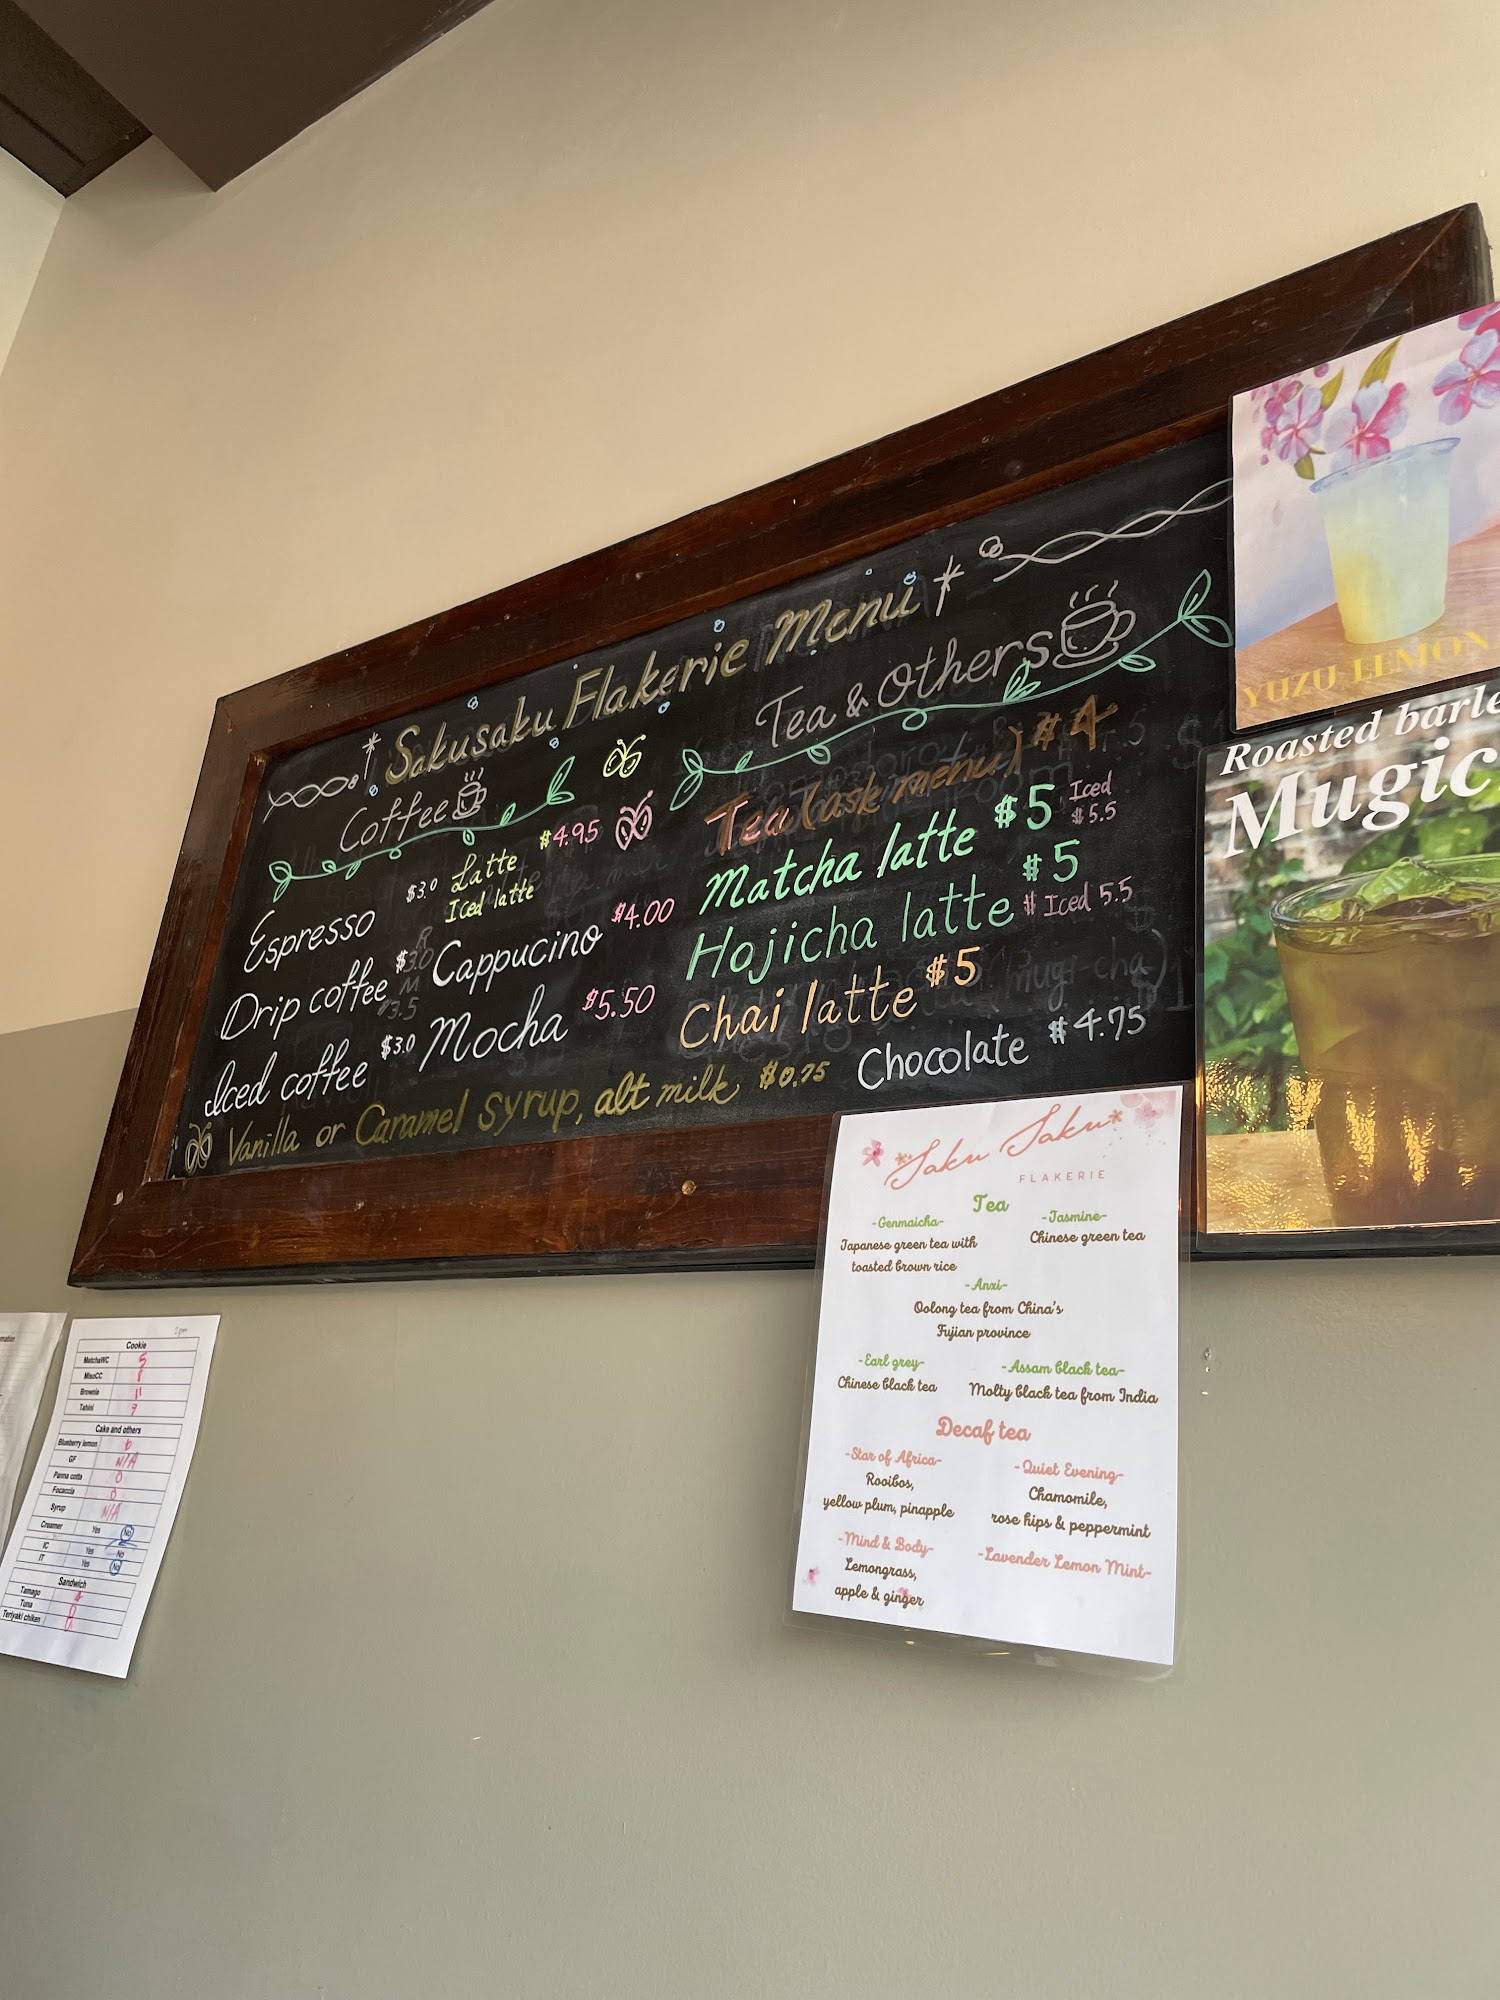 Sakusaku Flakerie Menu
Coffee
Espresso $3.0
Drip coffee R $3.0
M $3.5
Iced coffee $3.0
Latte $4.95
Iced latte
Cappucino $4.00
Mocha $5.50
Vanilla or Caramel syrup, alt milk $0.75
Tea & Others
Tea (ask menu) $4
Matcha latte $5 Iced $5.5
Hojicha latte $5
$ Iced 5.5
Chai latte $5
Chocolate $4.75
YUZU LEMON
Roasted barle
Mugic
Saku Saku
FLAKERIE
Tea
-Genmaicha-
Japanese green tea with
toasted brown rice
-Jasmine-
Chinese green tea
-Anxi-
Oolong tea from China's
Fujian province
-Earl grey-
Chinese black tea
-Assam black tea-
Molty black tea from India
Decaf tea
-Star of Africa-
Rooibos,
yellow plum, pinapple
-Quiet Evening-
Chamomile,
rose hips & peppermint
-Mind & Body-
Lemongrass,
apple & ginger
-Lavender Lemon Mint-
Cookie
MatchaWC 5
MisoCC
Brownie 11
Tahini 7
Cake and others
Blueberry lemon 6
GF N/A
Panna cotta 0
Focaccia
Syrup N/A
Creamer Yes No
IC Yes No
IT Yes No
Sandwich
Tamago
Tuna
Teriyaki chiken